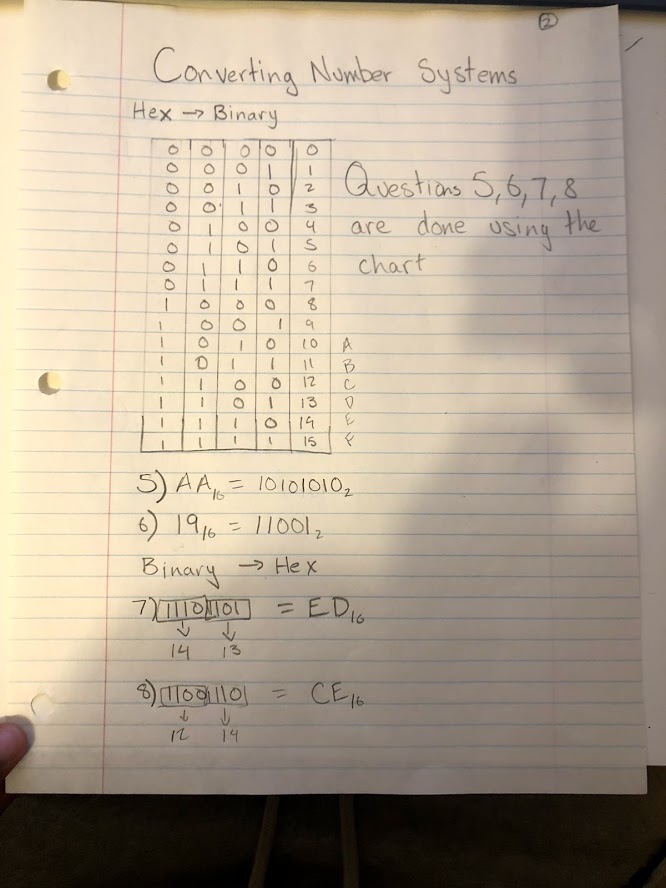 2
Converting Number Systems
Hex → Binary
0 0 0 0 0
0 0 0 1 1
0 0 1 0 2
0 0 1 1 3
0 1 0 0 4
0 1 0 1 5
0 1 1 0 6
0 1 1 1 7
1 0 0 0 8
1 0 0 1 9
1 0 1 0 10 A
1 0 1 1 11 B
1 1 0 0 12 C
1 1 0 1 13 D
1 1 1 0 14 E
1 1 1 1 15 F
Questions 5,6,7,8
are done using the
chart
5) AA₁₆ = 10101010₂
6) 19₁₆ = 11001₂
Binary → Hex
7) 1110 1101 = ED₁₆
↓ ↓
14 13
8) 1100 1110 = CE₁₆
↓ ↓
12 14